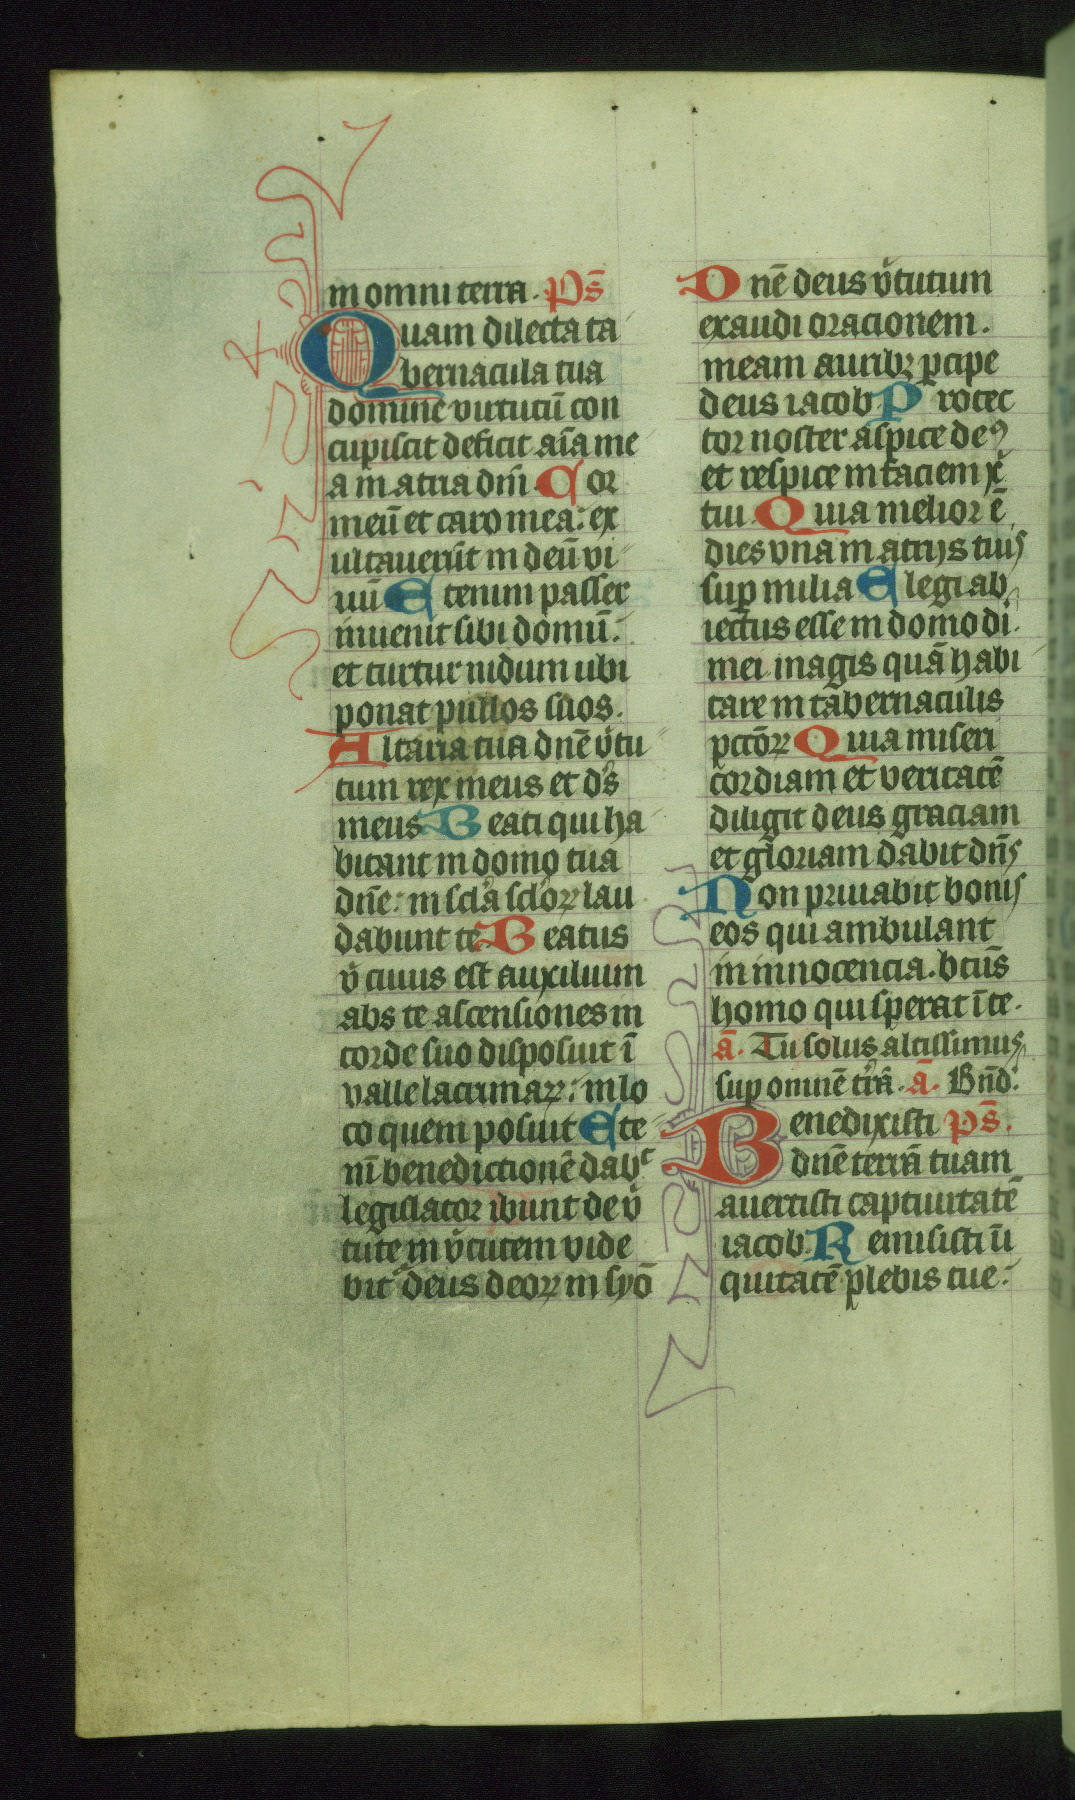 in omni terra. Ps̄
Quam dilecta ta
bernacula tua
domine virtutū con
cupiscit deficit aīa me
a in atria dnī. Cor
meū et caro mea: ex
ultauerūt in deū vi
uū Etenim passer
inuenit sibi domū:
et turtur nidum ubi
ponat pullos suos.
Altaria tua dnē v̾tu
tum rex meus et ds̄
meus Beati qui ha
bitant in domo tua
dn̄e: in scl̄a scl̄oꝝ lau
dabunt te Beatus
v̾ cuius est auxilium
abs te ascensiones in
corde suo disposuit ī
valle lacrimaꝝ: in lo
co quem posuit Ete
nī benedictionē dabᶜ
legislator ibunt de v̾
tute in v̾tutem vide
bit᷑ deus deoꝝ in syō
Dnē deus v̾tutum
exaudi oracionem.
meam auribꝫ ꝑcipe
deus iacob Protec
tor noster aspice deꝰ
et respice in faciem xp̄
tui. Quia melior ē
dies vna in atrijs tuis
suꝑ milia Elegi ab
iectus esse in domo di
mei magis quā habi
tare in tabernaculis
pctōꝝ Quia miseri
cordiam et veritatē
diligit deus graciam
et gloriam dabit dn̄s
Non priuabit bonis
eos qui ambulant
in innocencia. btūs
homo qui sperat ī te.
ā. Tu solus altissimus
suꝑ omnē tr̄ā. ā. Bn̄d.
Benedixisti ps̄.
dnē terrā tuam
auertisti captiuitatē
iacob. Remisisti īi
quitatē plebis tue: